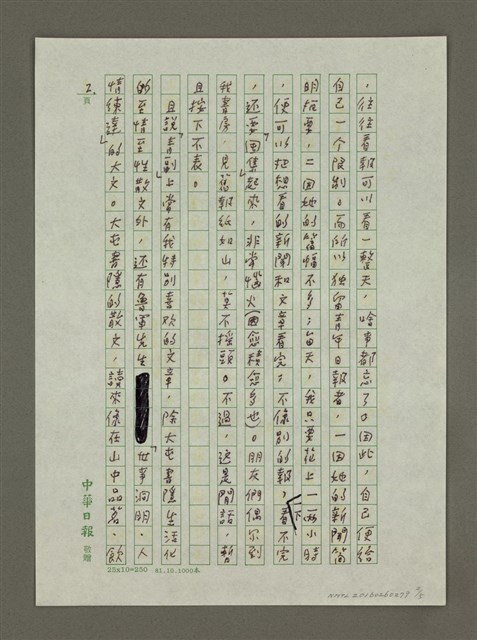 ，往往看報可以看一整天，啥事都忘了。因此，自己便給
自己一个限制。而所以独留青年日報者，一因她的新聞簡
明扼要，二因她的篇幅不多；每天，我只要花上一兩小時
，便可以把想看的新聞和文章看完；不像別的報，看不完下
，还要「圍集」起來，非常惱火（因愈積愈多也）。朋友們偶尔到
我書房，見舊報紙如山，莫不搖頭。不過，这是閒話，暫
且按下不表。
且說「青副」上常有我特別喜欢的文章，除大屯書隱生活化
的至情至性散文外，还有魯軍先生「世事洞明，人
情練達」的大文。大屯書隱的散文，讀來像在山中品茗，飲
2.頁
中華日報 敬贈
25x10=250 81.10.1000本
NMTL20060260279 2/5